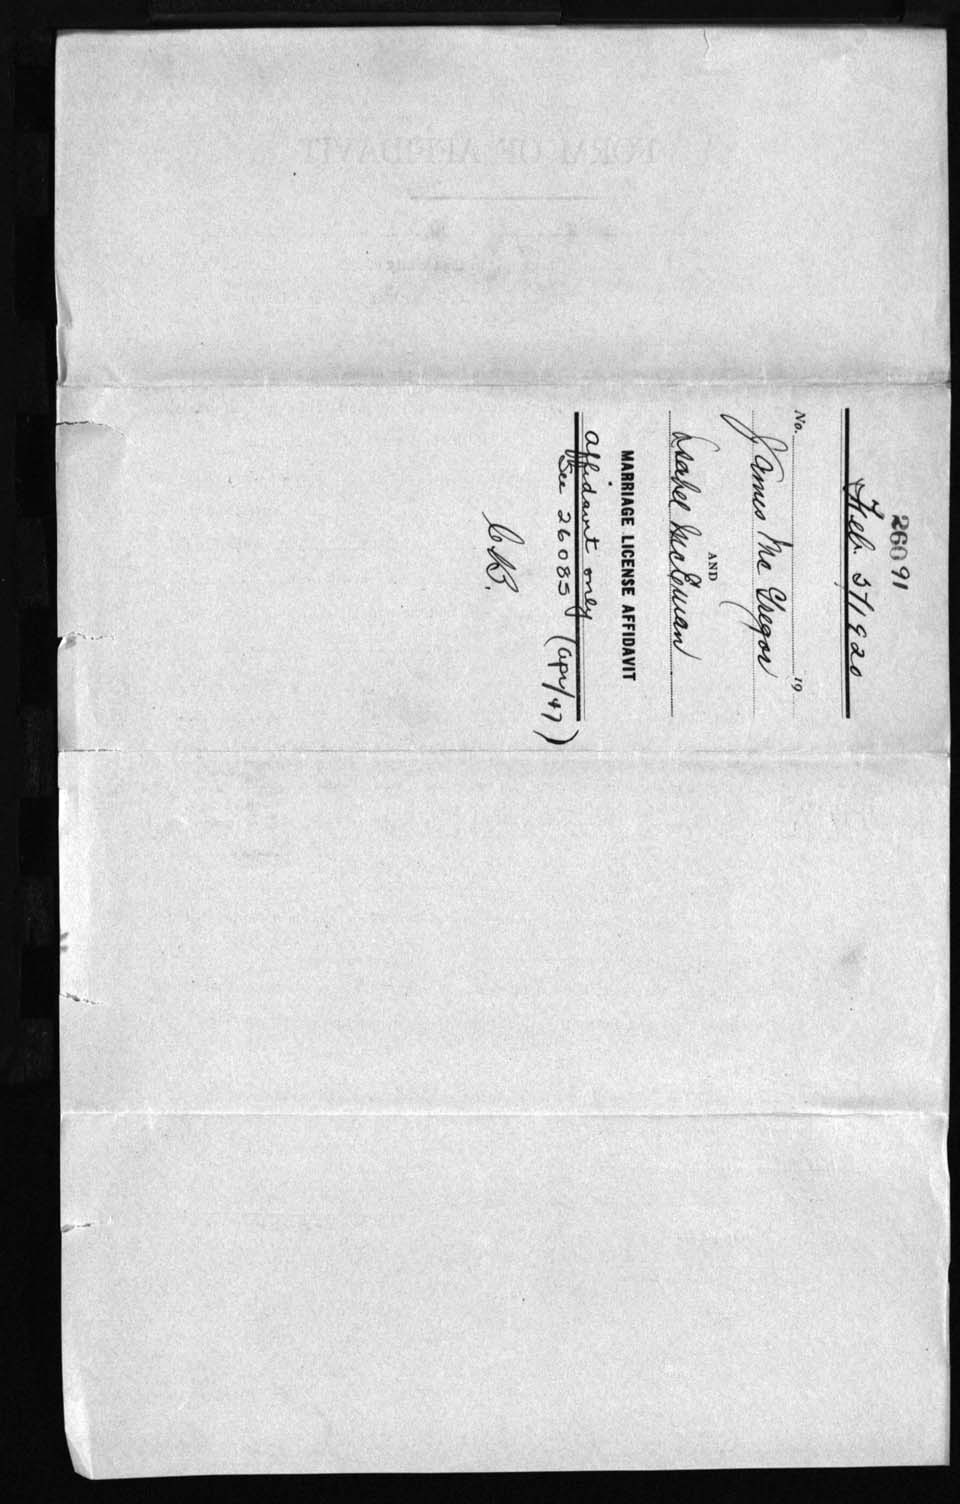 26091
Feb. 3/1920
No. 19
James McGregor
AND
Isabel McEwan
MARRIAGE LICENSE AFFIDAVIT
affidavit only
See 26085 (Apr/47)
FORM OF AFFIDAVIT